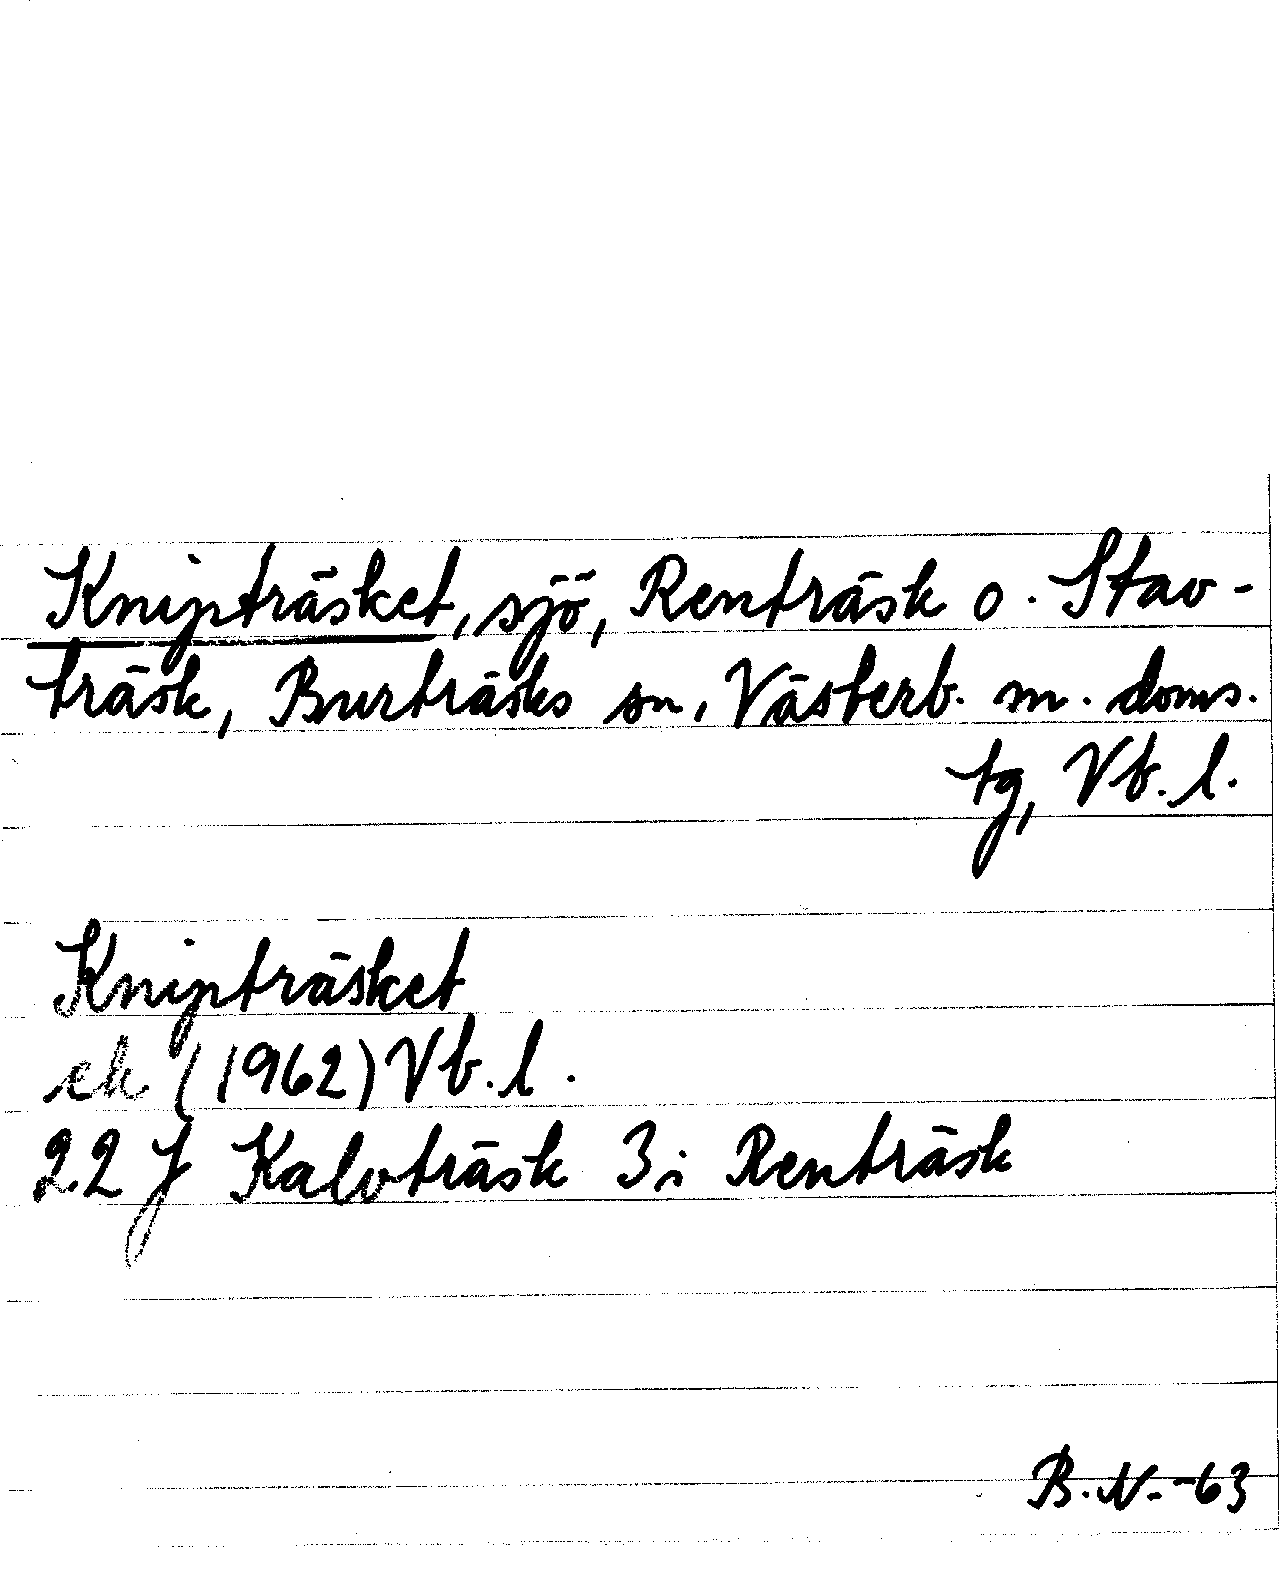 Knipträsket, sjö, Renträsk o. Stav-
träsk, Burträsks sn, Västerb. m. doms.
tg, Vb. l.
Knipträsket
ek (1962) Vb. l.
22 J Kalvträsk 3i Renträsk
B.N.-63